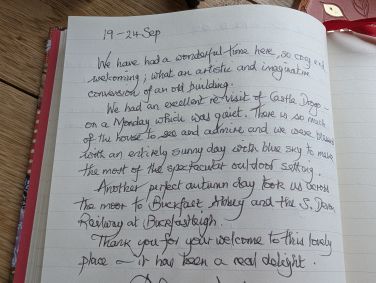 19-24 Sep
We have had a wonderful time here, so cosy and
welcoming; what an artistic and imaginative
conversion of an old building.
We had an excellent re-visit of Castle Drogo -
on a Monday which was quiet. There is so much
of the house to see and admire and we were blessed
with an entirely sunny day with blue sky to make
the most of the spectacular outdoor setting.
Another perfect autumn day took us across
the moor to Buckfast Abbey and the S. Devon
Railway at Buckfastleigh.
Thank you for your welcome to this lovely
place - it has been a real delight.